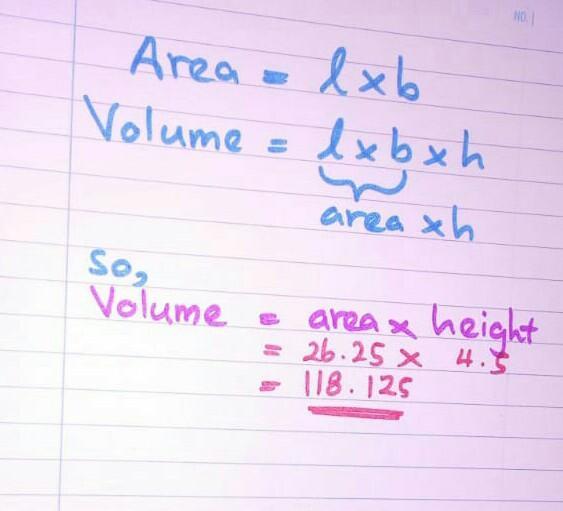 NO.
Area = l x b
Volume = l x b x h
area x h
So,
Volume = area x height
= 26.25 x 4.5
= 118.125